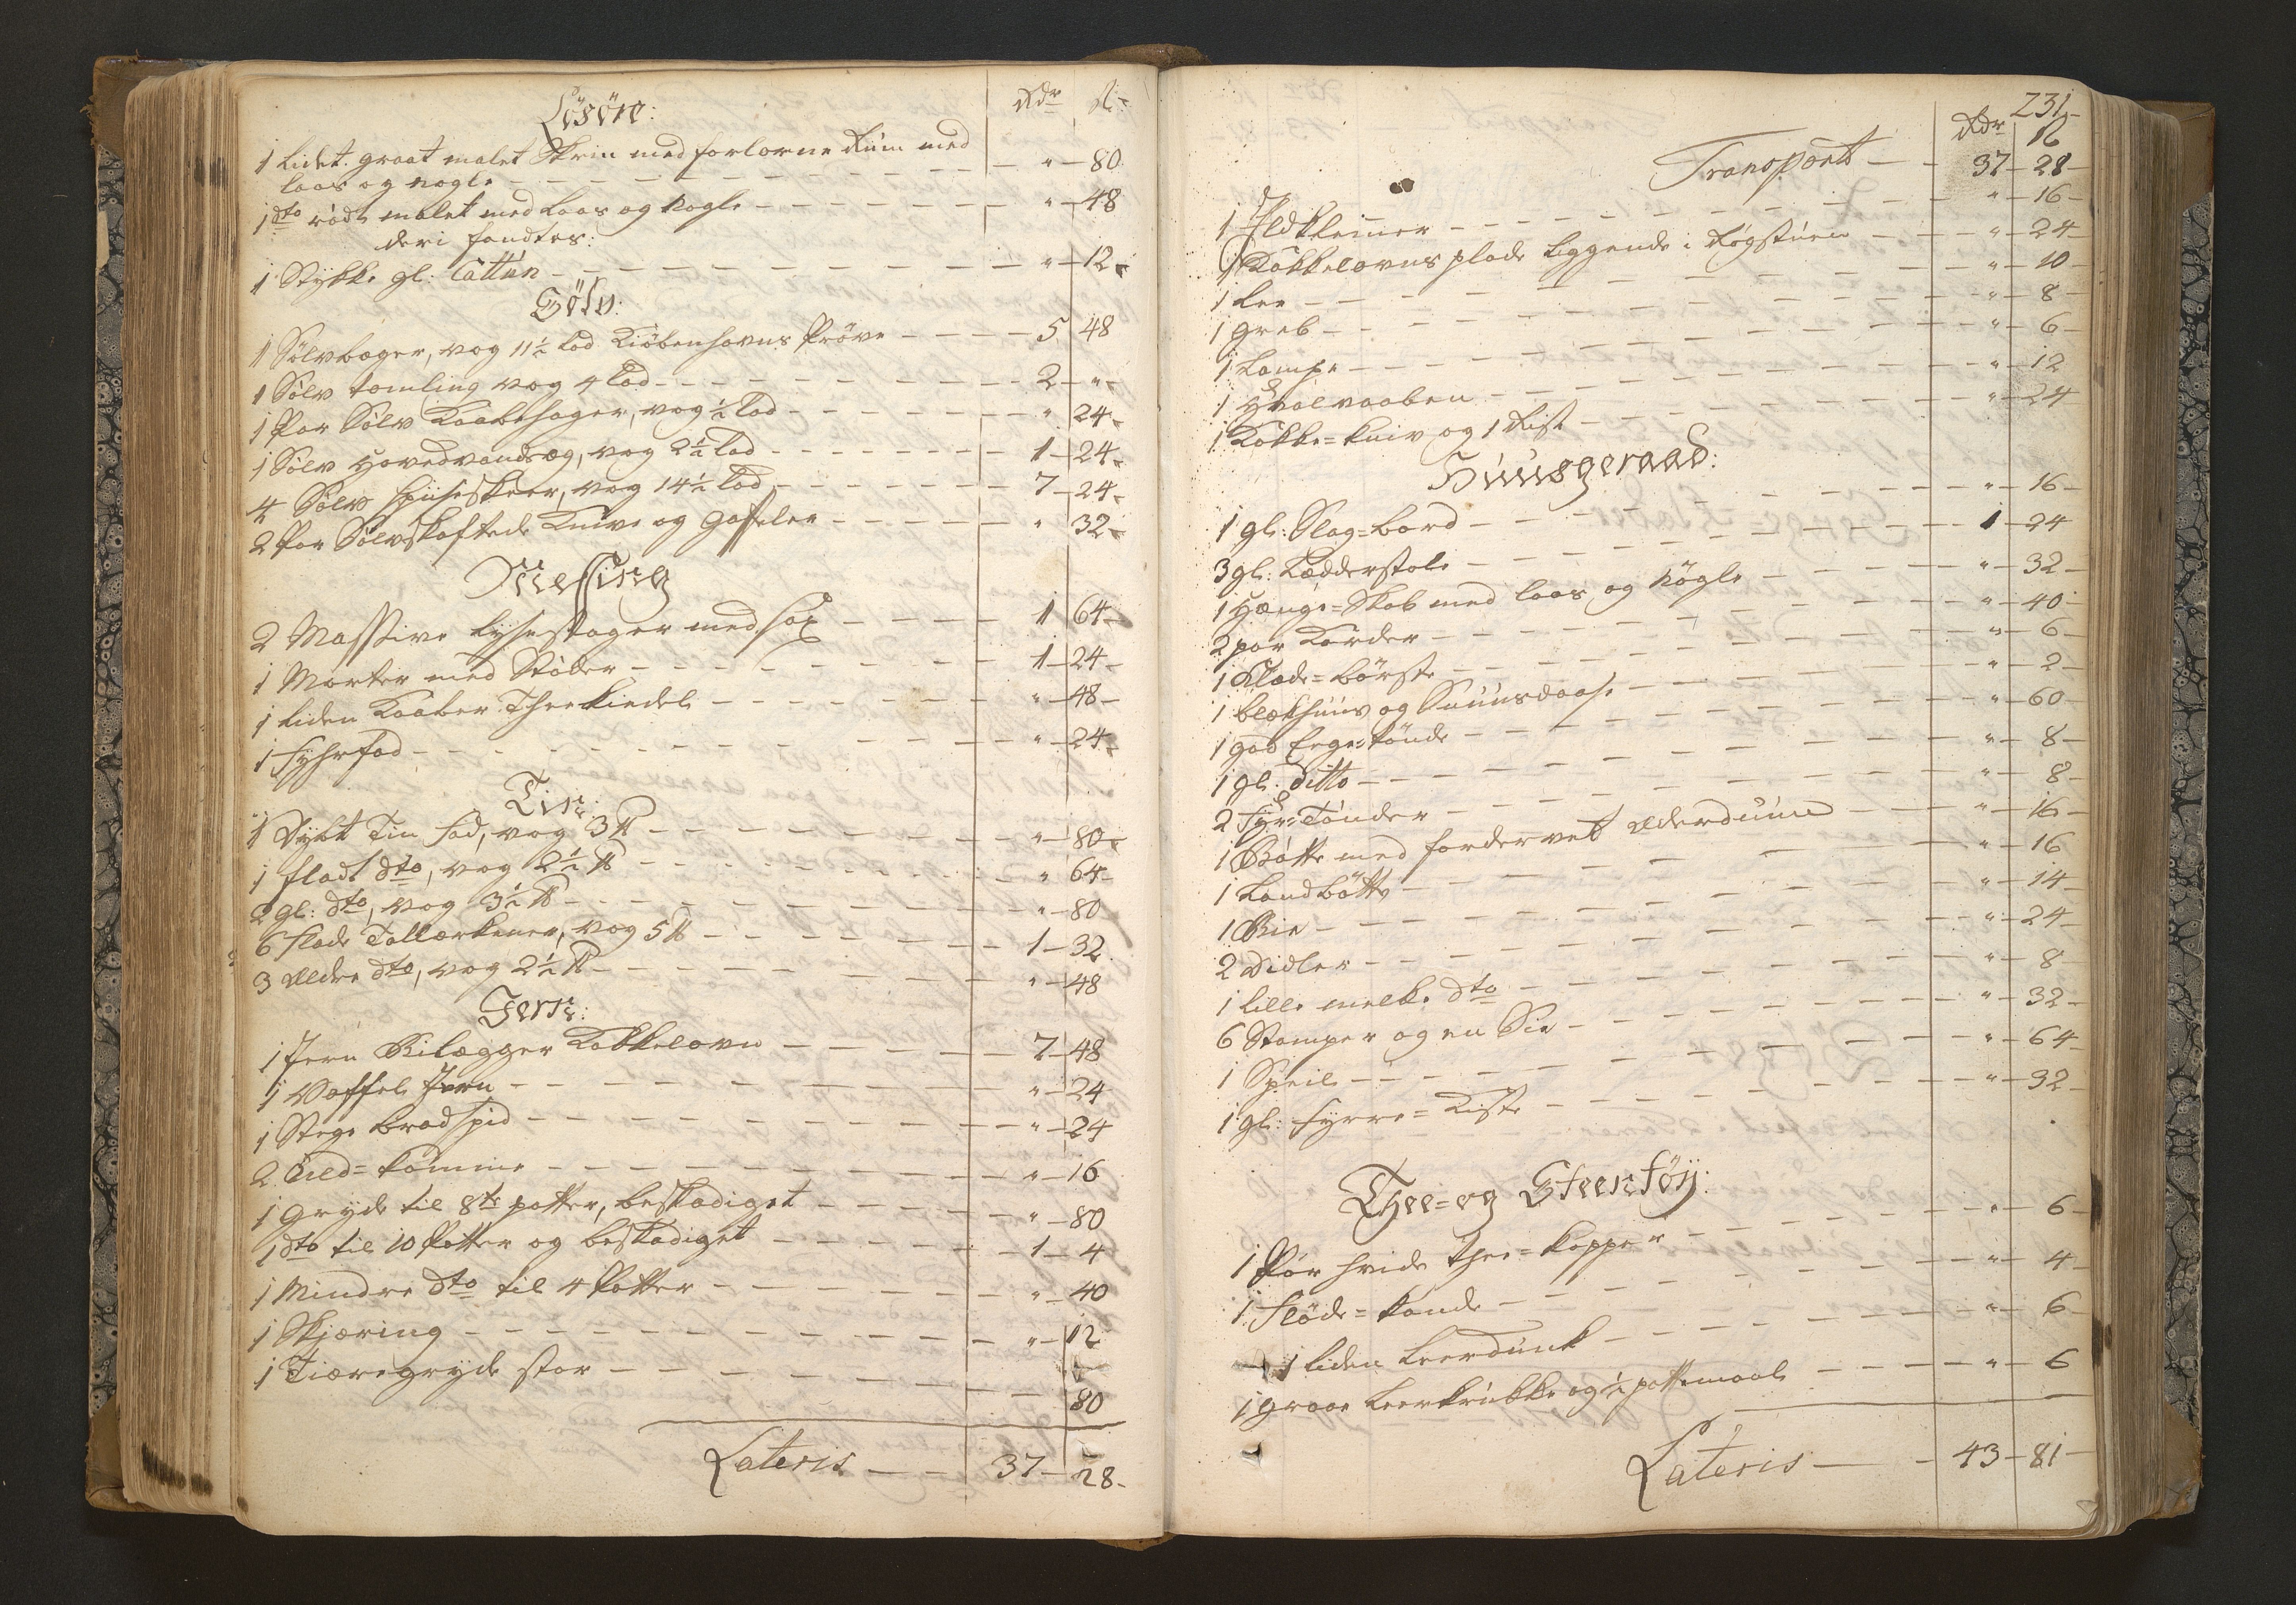 Lösöre: Rdr ß
1 Lidet graat malet Skrin med forlorne Rúm med
laas og nogle — " — 80
1 dto rödt malet med Laas og Nogle — " — 48
deri fandtes:
1 Stÿkke gl: Cattún — " — 12
Sölv:
1 Sölvbæger, vog 11½ Lod Kiöbenhavns Pröve — 5 48
1 Sölv tomling vog 4 Lod — 2 — "
1 Par Sölv Kaabehager, vog ½ Lod — " 24
1 Sölv Hovedvandsæg, vog 2½ Lod — 1 — 24
4 Sölv Spiiseskeer, vog 14½ Lod — 7 — 24
2 Par Sölvskaftede Knive og Gafler — " 32
Messing
2 Massive Lysestager med sax — 1 64
1 Morter med Stöder — 1 — 24
1 liden Kaaber Theekiedel — " — 48
1 Fyhrfad — " — 24
Tin:
1 Dybt Tin Fad, vog 3 ℔ — " — 80
1 fladt dto, vog 2½ ℔ — " 64
2 gl: dto, vog 3½ ℔ — " — 80
6 flade Tallerkener, vog 5 ℔ — 1 — 32
3 Ældre dto, vog 2½ ℔ — " — 48
Jern:
1 Jern Bilægger Kakkelovn — 7 — 48
1 Vaffel Jern — " — 24
1 Stege bradspid — " — 24
2 — " — 16
1 Gryde til 8te potter, beskadiget — " — 80
1 dto til 10 Potter og beskadiget — 1 — 4
1 Mindre dto til 4 Potter — " — 40
1 Skjæring — " — 12
1 Tiæregryde stor — 80
Lateris — 37 — 28
231
Rdr ß
Transport — 37 — 28
1 Ildklemmer — " — 16
1 Kakkelovns plade liggende i Rögstúen — " — 24
1 Lee — " — 10
1 Greb — " — 8
1 Lampe — " — 6
1 Hvalvaaben — " — 12
1 Kakke=kniv og 1 Rist — " — 24
Húúsgeraad:
1 gl: Slag=bord — " — 16
3 gl: Lædderstole — 1 — 24
1 Hænge=Skab med laas og Nögle — " — 32
2 par Karder — " — 40
1 Klæde=börste — " — 6
1 blækhúús og Snúúsdaase — " — 2
1 god Ege=tönde — " — 60
1 gl: ditto — " — 8
2 Fyr=Tönder — " — 8
1 Bötte med fordervet Ederdúún — " — 16
1 Landbötte — " — 16
1 Bie — " — 14
2 Didler — " — 24
1 lille melke dto — " — 8
6 Stamper og en Sie — " — 32
1 Speil — " — 64
1 gl: Fyrre=Kiste — " — 32
Thee=og Steentöÿ:
1 Par hvide thee=kopper — " — 6
1 Flöde=kande — " — 4
1 liden Leerdúnk — " — 6
1 graae Leerkrúkke og ½ pottemaal — " — 6
Lateris — 43 — 81